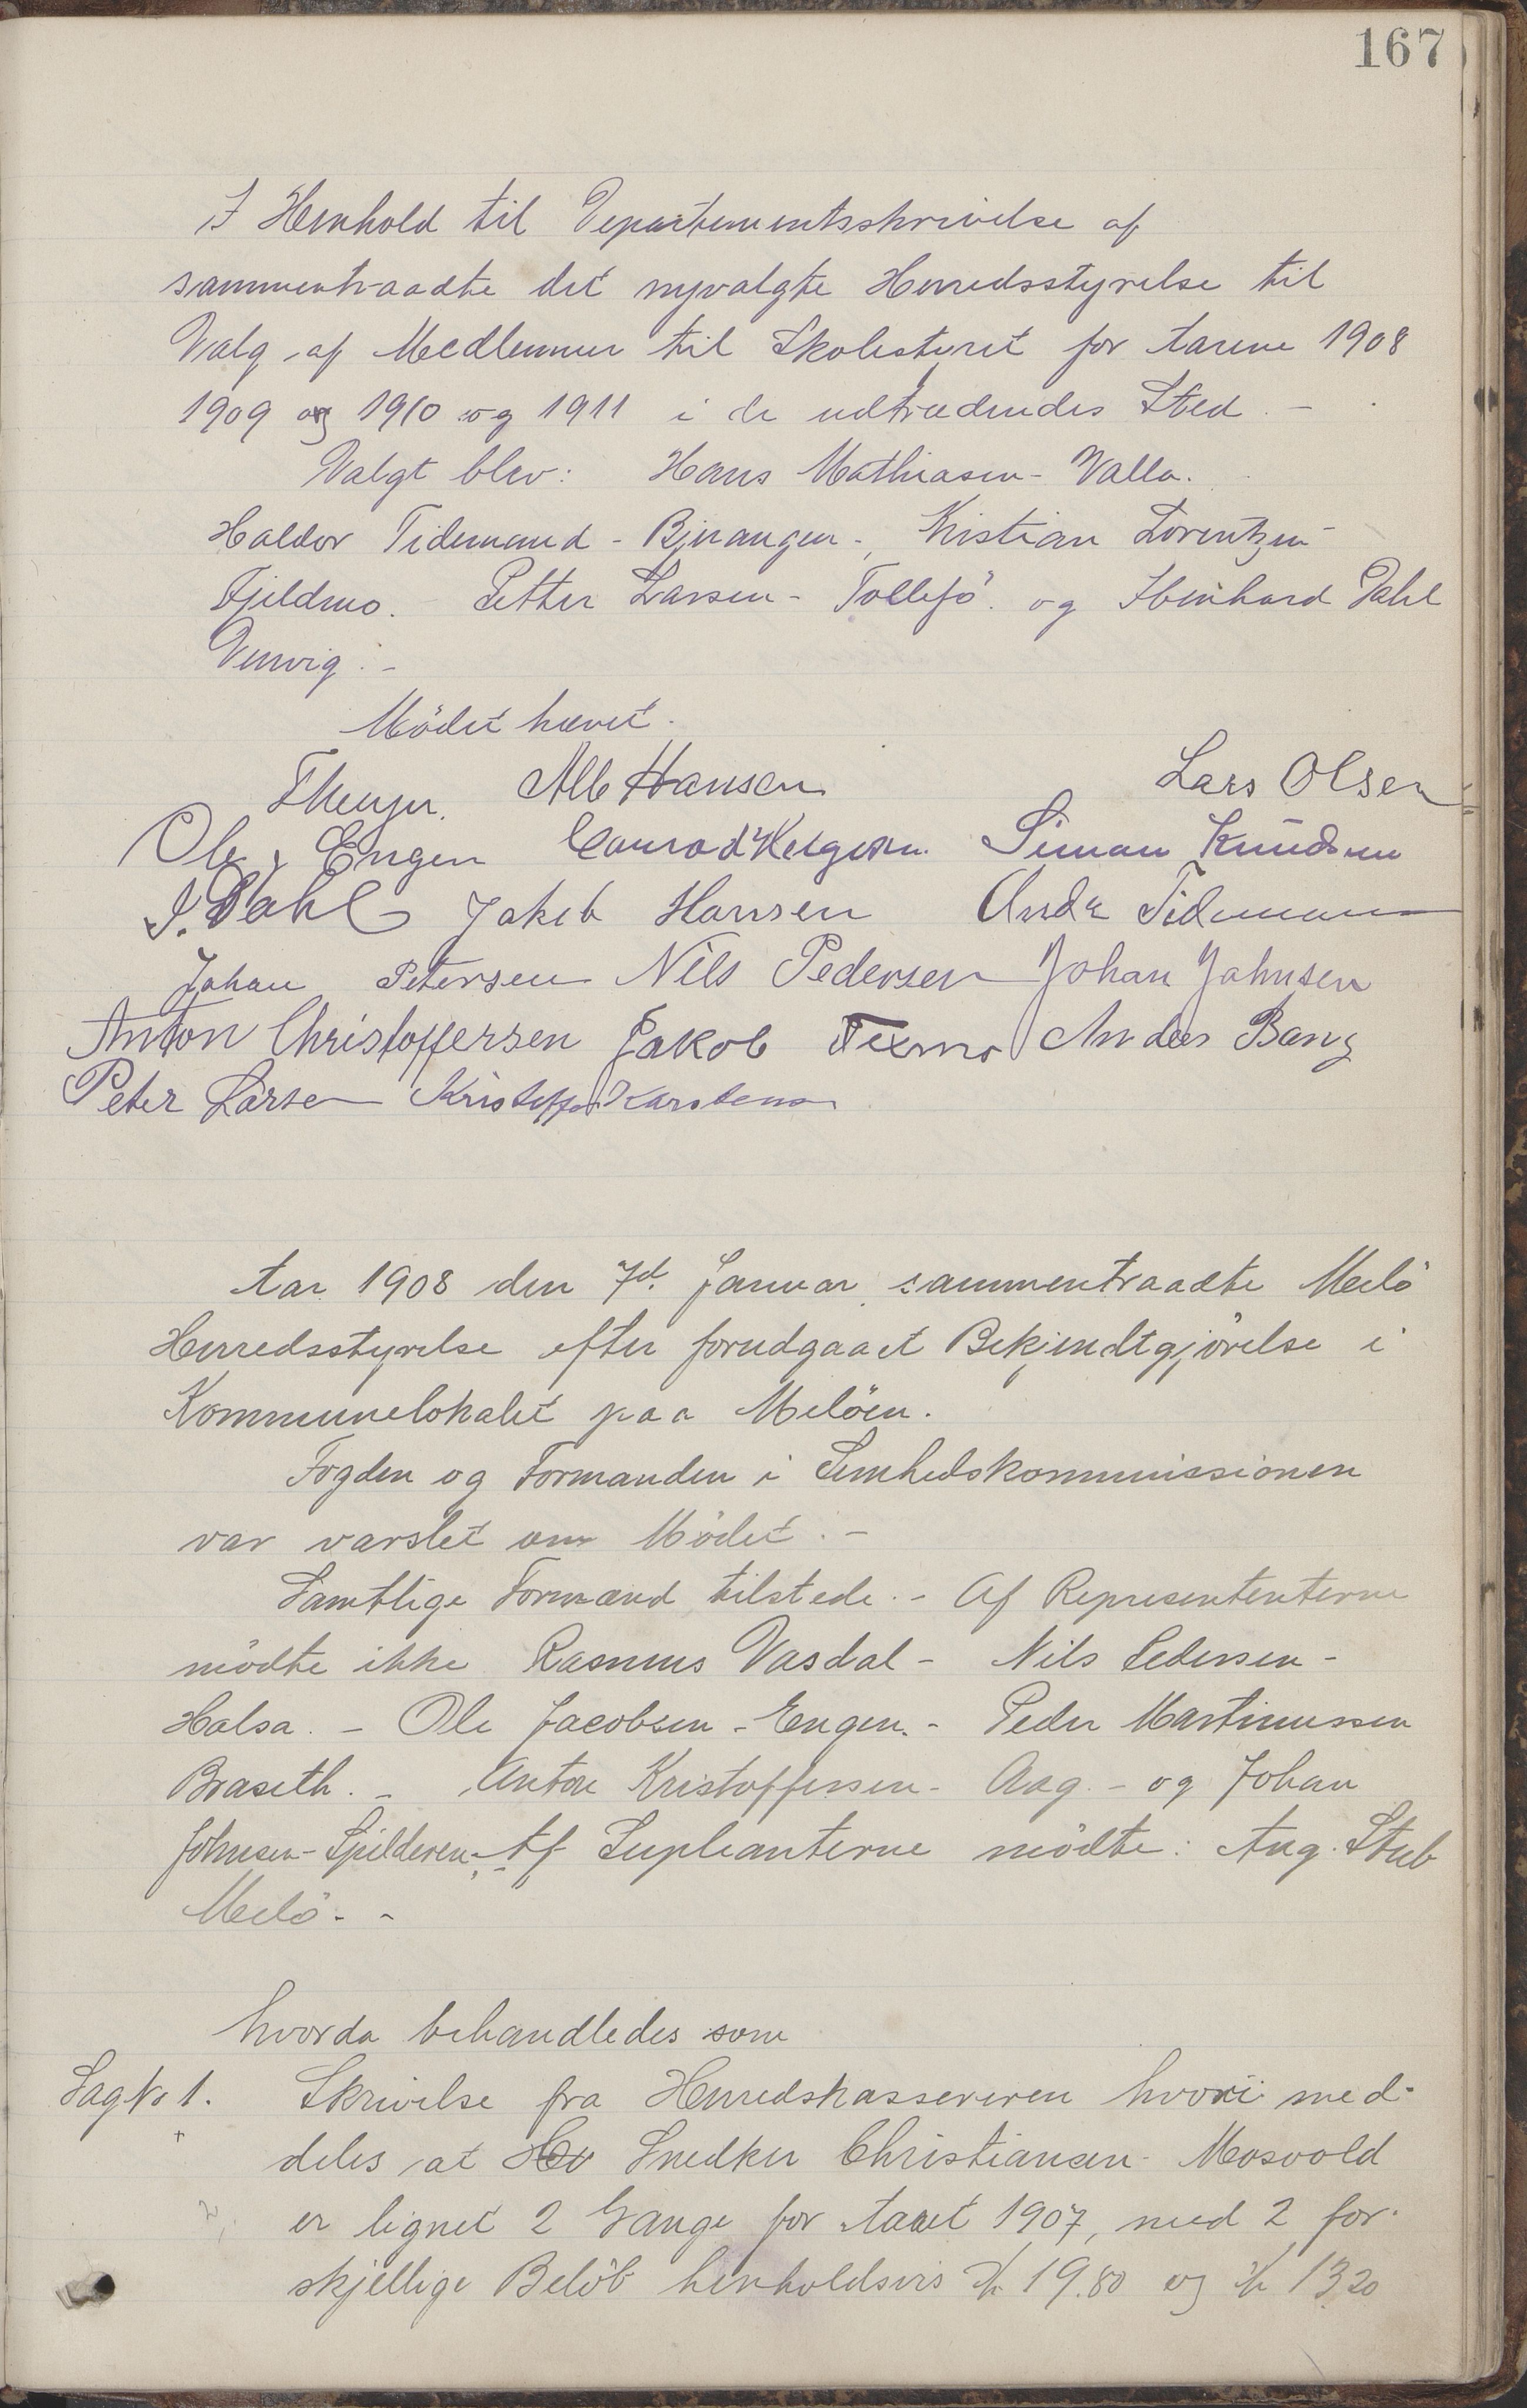 167
I Henhold til Departementsskrivelse af
sammentraadte det nyvalgte Herredsstyrelse til
Valg af Medlemmer til Skolestyret for Aarene 1908
1909 og 1910 og 1911 i de udtrædendes Sted. -
Valgt blev: Hans Mathiasen - Valla.
Haldor Tidemand - Bjerangen -, Kristian Lorentzen -
Fjeldmo. Petter Larsen - Tollefö. og Ebenhard Dahl
Venvig. -
Mödet hævet.
Alb Hansen Lars Olsen
Ole J Engen Conrad Helgesen. Simon Knudsen
J. Dahl Jakob Hansen Tidemann
Johan Petersen Nils Pedersen Johan Johnsen
Anton Christoffersen Jakob Texmo Anders Bang
Peter Larsen Kristoffer Karstensen
Aar 1908 den 7d. Januar sammentraadte Melö
Herredsstyrelse efter forudgaaet Bekjendtgjörelse i
Kommunelokalet paa Melöen.
Fogden og Formanden i Sunhedskommissionen
var varslet om Mödet. -
Samtlige Formænd tilstede. - Af Represententerne
mödte ikke Rasmus Vasdal - Nils Pedersen -
Halsa. - Ole Jacobsen - Engen. - Peder Martinussen
Braseth. - Anton Kristoffersen - Aag. - og Johan
Johnsen - Spilderen. - Af Suplianterne mödte: Aug. Stub
Melö. -
hvorda behandledes som
Sag No 1. Skrivelse fra Herredskassereren hvori med-
deles at Snedker Christiansen - Mosvold
er lignet 2 Gange for Aaret 1907, med 2 for-
skjellige Belöb henholdsvis Kr 19.80 og Kr 13.20